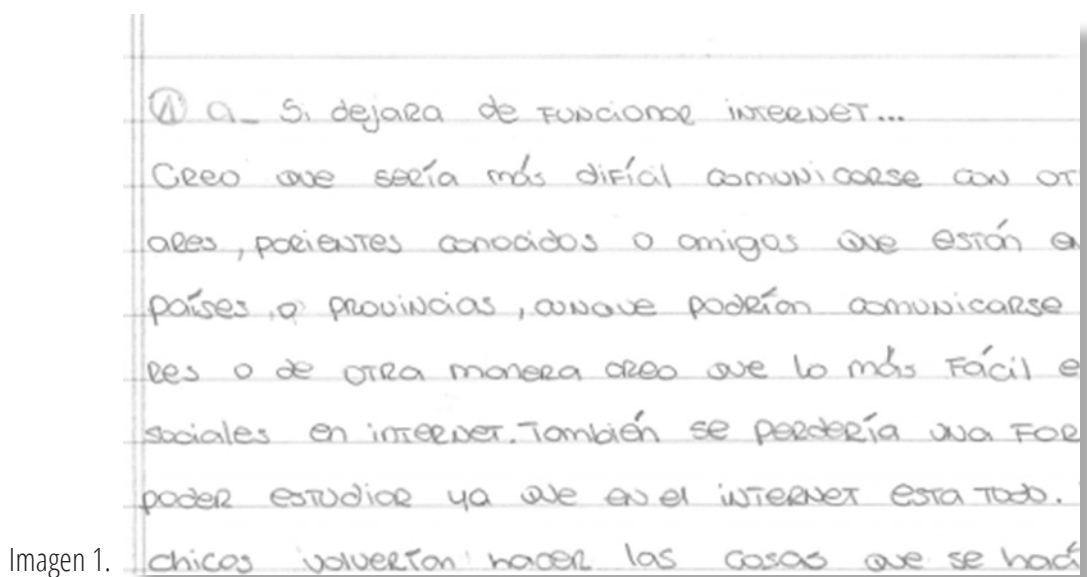 1 a_ Si dejara de funcionar internet...
Creo que sería más difícil comunicarse con ot
ares, parientes conocidos o amigos que están e
países, o provincias, aunque podrían comunicarse
res o de otra manera creo que lo más fácil e
sociales en internet. También se perdería una for
poder estudiar ya que en el internet esta todo.
Imagen 1. chicos volverían hacer las cosas que se hací